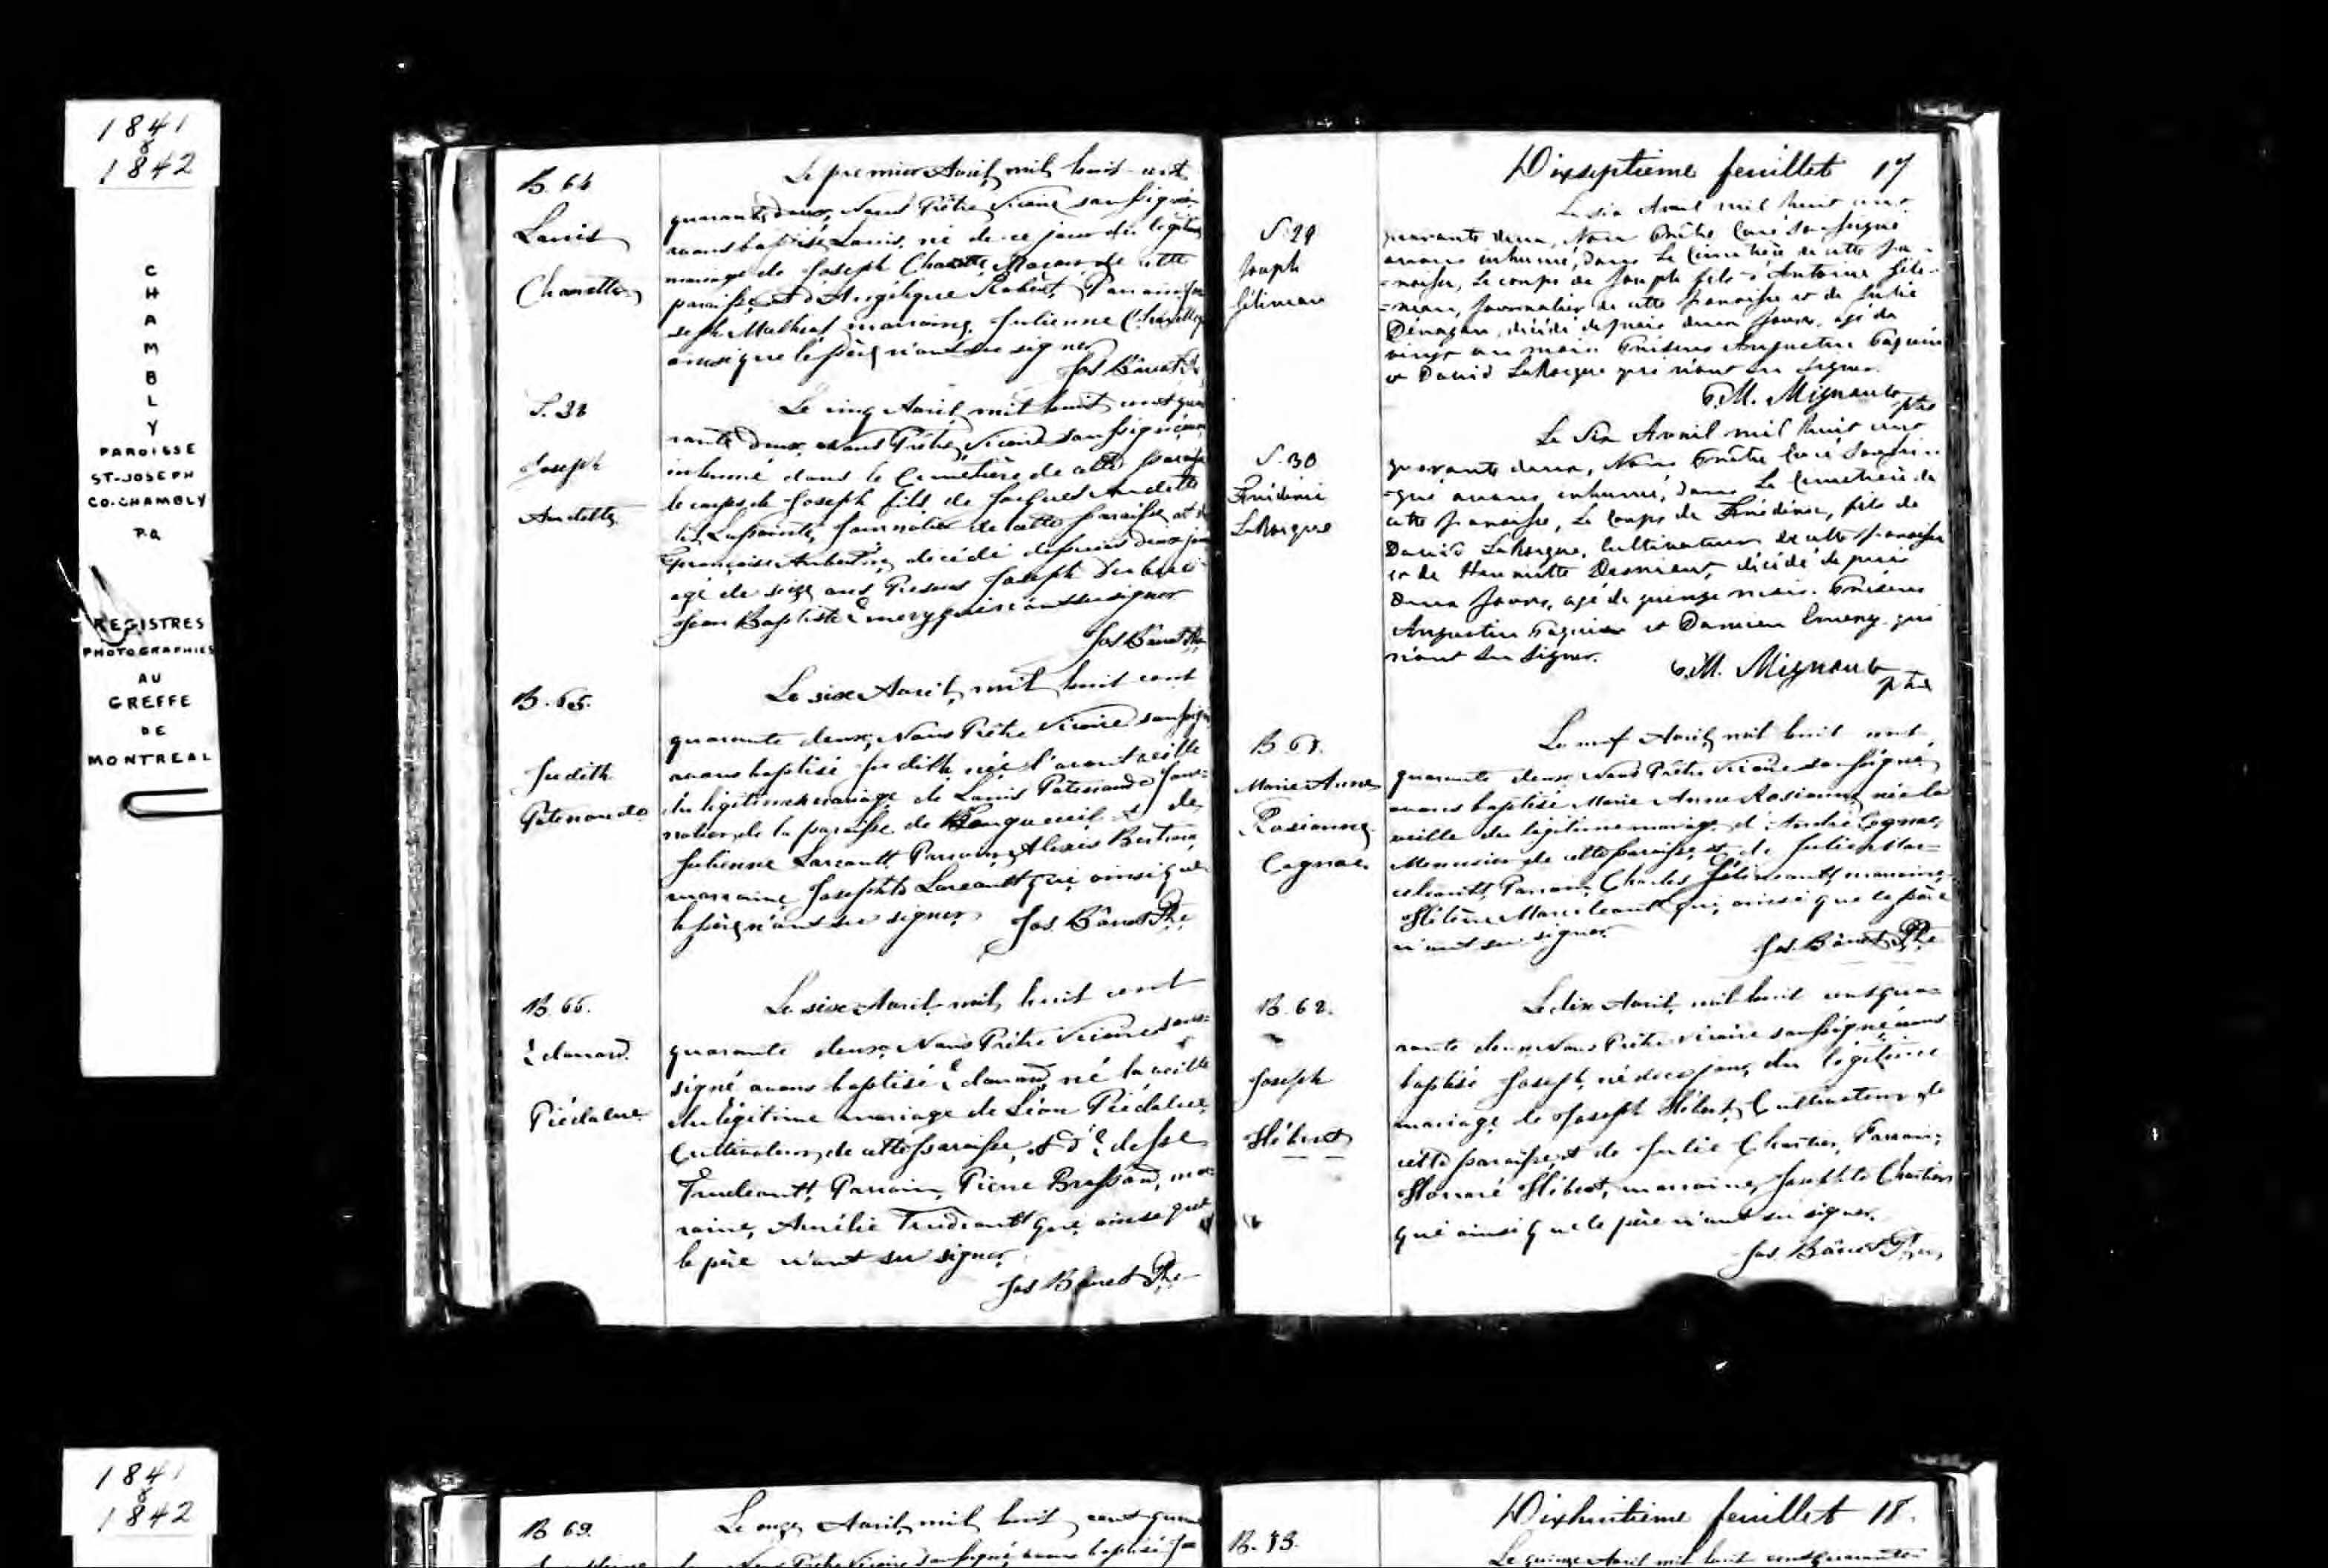 1841
&
1842
CHAMBLY
PAROISSE
ST-JOSEPH
CO-CHAMBLY
P.Q.
REGISTRES
PHOTOGRAPHIES
AU
GREFFE
DE
MONTREAL
B. 64
Louis
Charette
Le premier Avril, mil huit cent
quarante deux, Nous Prêtre Vicaire soussigné
avons baptisé Louis, né de ce jour du légitime
mariage de Joseph Charette, Maçon de cette
paroisse, et d'Angélique Robert, Parrain Jo-
seph Mathieu marraine, Julienne Charette
ainsi que le père n'ont su signer
Jos Bânet Ptre
S. 28
Joseph
Audette
Le cinq Avril, mil huit cent qua
rante deux, Nous Prêtre, Vicaire soussigné, avons
inhumé dans le Cimetière de cette paroisse
le corps de Joseph fils de Jacques Audette
dit Lapointe, Journalier de cette paroisse et de
Françoise Aubertin, décédé depuis deux jours
agé de seize ans Présens Joseph
Jean Baptiste Emery qui n'ont su signer
Jos Bânet Ptre
B. 65.
Judith
Patenaude
Le six Avril, mil huit cent
quarante deux, Nous Prêtre Vicaire soussigné
avons baptisé Judith, née l'avant veille
du légitime mariage de Louis Patenaude Jour-
nalier, de la paroisse de Longueuil et de
Julienne Lareault Parrain, Alexis Bertrand,
marraine Josephte Lareault qui, ainsi que
le père, n'ont su signer Jos. Bânet Ptre
B. 66.
Edouard
Piédalue
Le six Avril, mil huit cent
quarante deux, Nous Prêtre Vicaire sous-
signé avons baptisé Edouard, né la veille
du légitime mariage de Léon Piédalue,
Cultivateur, de cette paroisse, et d'Edesse
Trudeault, Parrain, Pierre Brossard, mar
raine, Aurélie Trudeault qui, ainsi que
le père n'ont su signer.
Jos Bânet Ptre
Dixseptieme feuillet 17
S. 29
Joseph
Gélineau
Le six Avril mil huit cent
quarante deux, Nous Prêtre Curé soussigné
avons inhumé, dans le Cimetière de cette pa-
-roisse, le corps de Joseph fils d'Antoine Géli-
-neau, Journalier de cette paroisse et de Julie
décédé depuis deux jours, agé de
vingt un mois. Présens Augustin Paquin
et David LaRocque qui n'ont su signer.
P.M. Mignault
ptre
S. 30
Frédéric
LaRocque
Le Six Avril mil huit cent
quarante deux, Nous Prêtre Curé soussi-
-gné avons inhumé, dans le Cimetière de
cette paroisse, le corps de Frédéric, fils de
David LaRocque, Cultivateur de cette paroisse
et de Henriette décédé depuis
deux jours, agé de quinze mois. Présens
Augustin Paquin et Damien Emery qui
n'ont su signer. P.M. Mignault
ptre
B. 67.
Marie Anne
Rosianne
Cognac
Le neuf Avril, mil huit cent
quarante deux, Nous Prêtre Vicaire soussigné,
avons baptisé Marie Anne Rosianne, née la
veille du légitime mariage d'André Cognac,
Menuisier, de cette paroisse, et de Julie Mar-
celeault, Parrain, Charles Gélineault, marraine,
Hélène Marceleault qui, ainsi que le père
n'ont su signer.
Jos. Bânet Ptre
B. 68.
Joseph
Hébert
Le dix Avril, mil huit cent qua-
rante deux, Nous Prêtre Vicaire soussigné, avons
baptisé Joseph, né de ce jour, du légitime
mariage de Joseph Hébert, Cultivateur, de
cette paroisse, et de Julie Chartier, Parrain,
Honoré Hébert, marraine, Josephte Chartier
qui ainsi que le père n'ont su signer.
Jos Bânet Ptre
1841
&
1842
B 69.
Le onze Avril, mil huit cent quara
Nous Prêtre Vicaire soussigné, avons baptisé
Dixhuitieme feuillet 18.
B. 73.
Le quinze Avril mil huit cent quarante